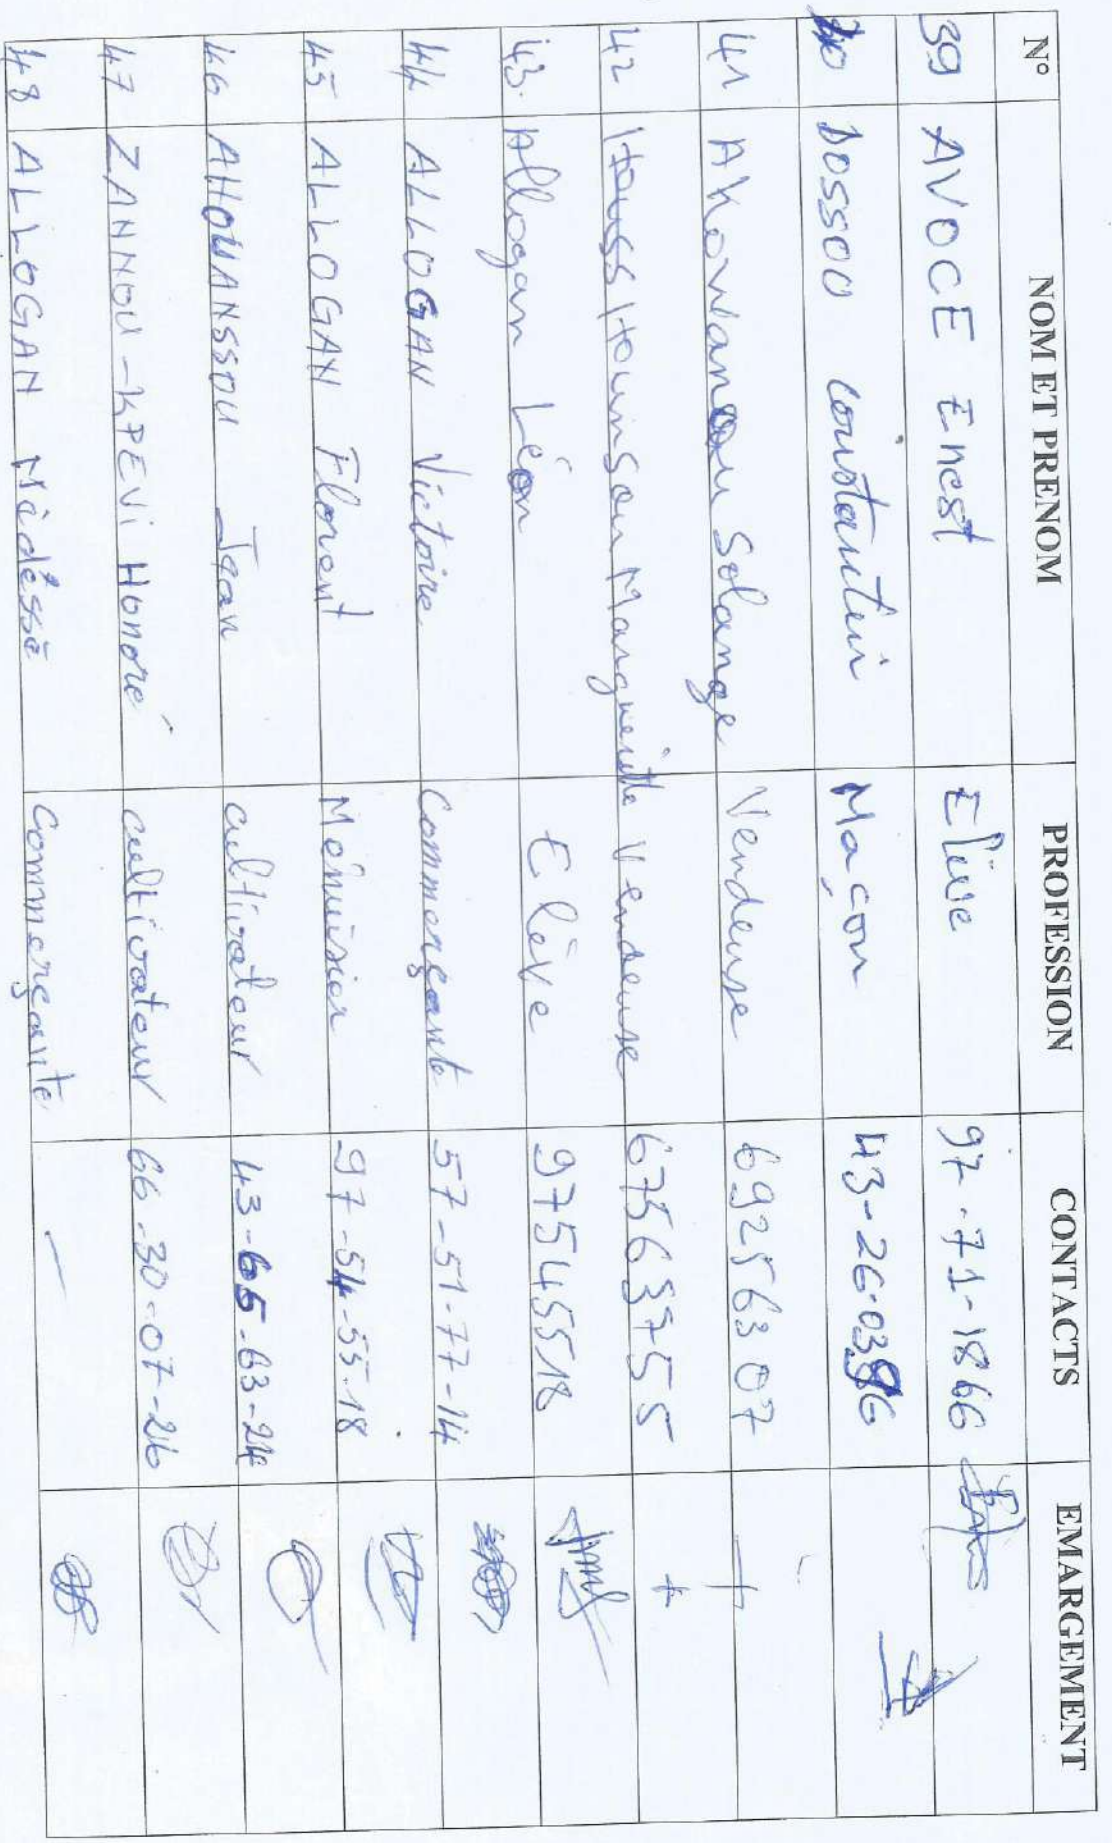 N° NOM ET PRENOM PROFESSION CONTACTS EMARGEMENT
39 AVOCE Enest Elève 97-71-1866
40 DOSSOU Constantin Maçon 43-26-03
41 AKovlanou Solange Vendeuse 69256307
42 Houss Houinsou Marguerite Vendeuse 67563755
43. Allogan Léon Elève 97545518
44 ALLOGAN Victoire Commerçante 57-51-77-14
45 ALLOGAN Florent Ménuisier 97-54-55-18
46 AHOUANSSOU Jean cultivateur 43-65-63-24
47 ZANNOU-KPEVI Honoré cultivateur 66-30-07-26
48 ALLOGAN Midéssè Commerçante —